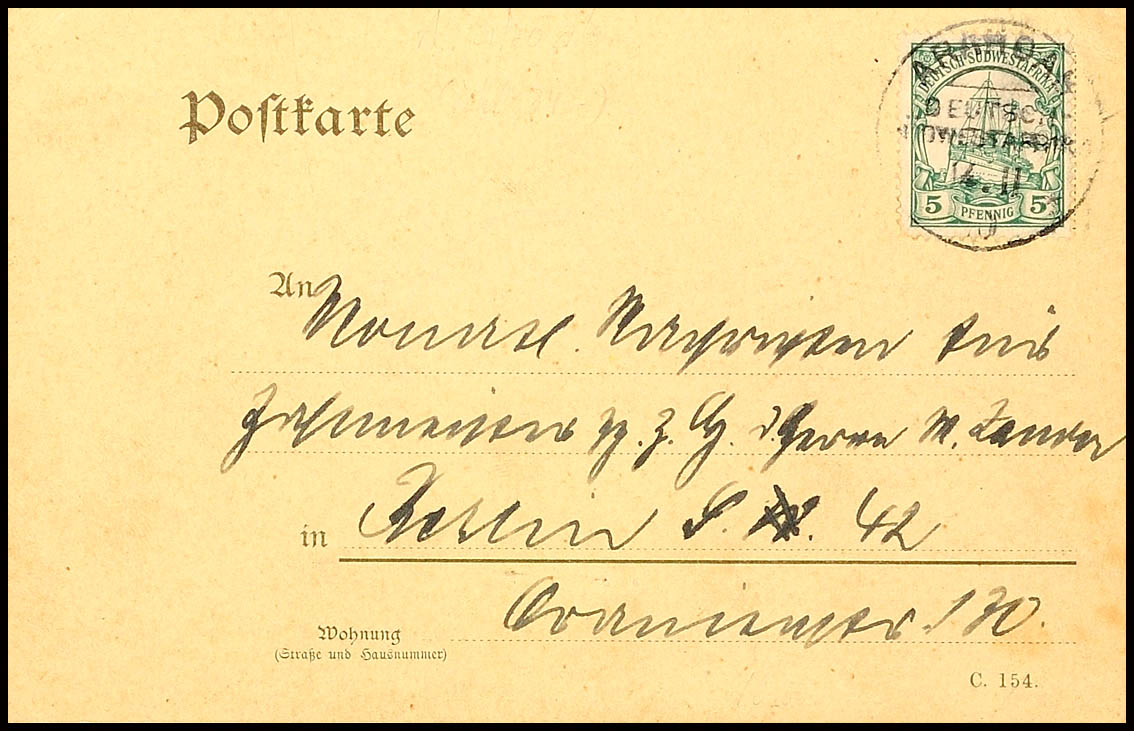 Postkarte
ARAHOAB
DEUTSCH-SÜDWESTAFRIKA
DEUTSCH
SÜDWESTAFRIKA
14.11
5 PFENNIG 5
An Monatl. Nachrichten für
Zahnmeister z. Z. Herrn M.
in Berlin S. 42
Wohnung Oranienstr. 130.
(Straße und Hausnummer)
C. 154.